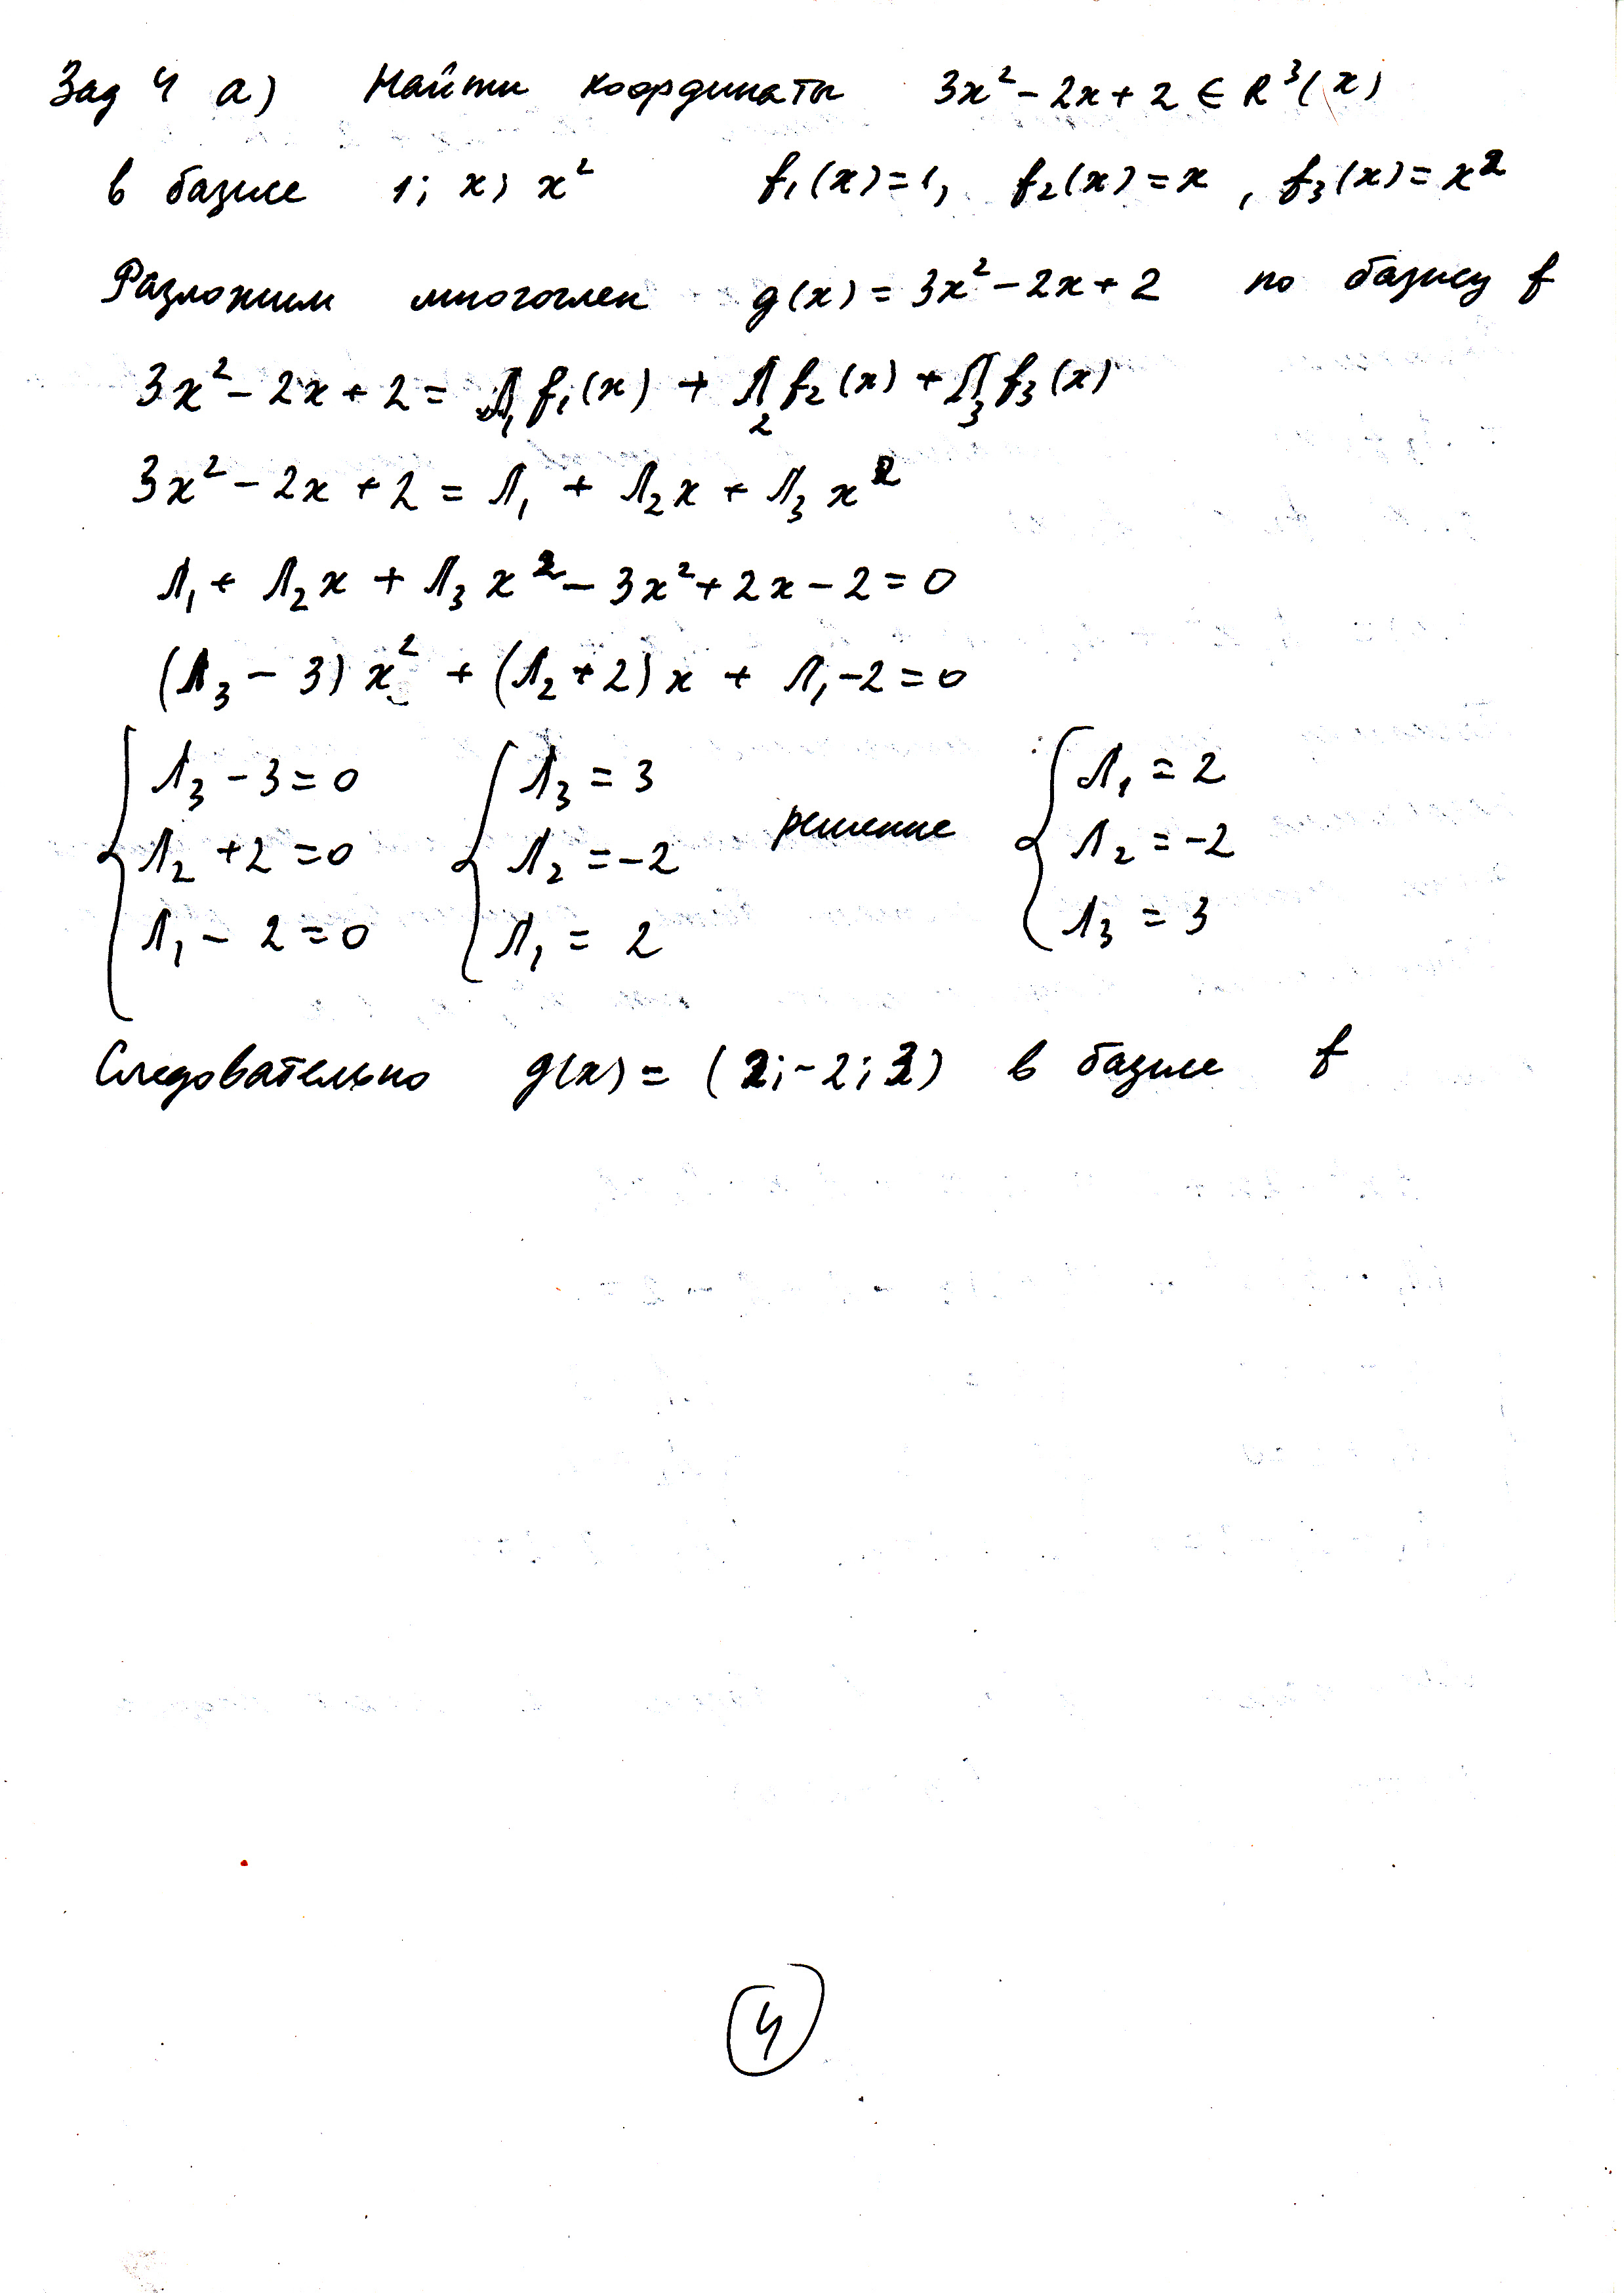 Зад 4 а) Найти координаты 3x² - 2x + 2 ∈ R³(x)
в базисе 1; x; x² f₁(x)=1, f₂(x)=x, f₃(x)=x²
Разложим многочлен g(x) = 3x² - 2x + 2 по базису f
3x² - 2x + 2 = λ₁f₁(x) + λ₂f₂(x) + λ₃f₃(x)
3x² - 2x + 2 = λ₁ + λ₂x + λ₃x²
λ₁ + λ₂x + λ₃x² - 3x² + 2x - 2 = 0
(λ₃ - 3)x² + (λ₂ + 2)x + λ₁ - 2 = 0
λ₃ - 3 = 0 λ₃ = 3 λ₁ = 2
λ₂ + 2 = 0 λ₂ = -2 решение λ₂ = -2
λ₁ - 2 = 0 λ₁ = 2 λ₃ = 3
Следовательно g(x) = (2; -2; 3) в базисе f
4